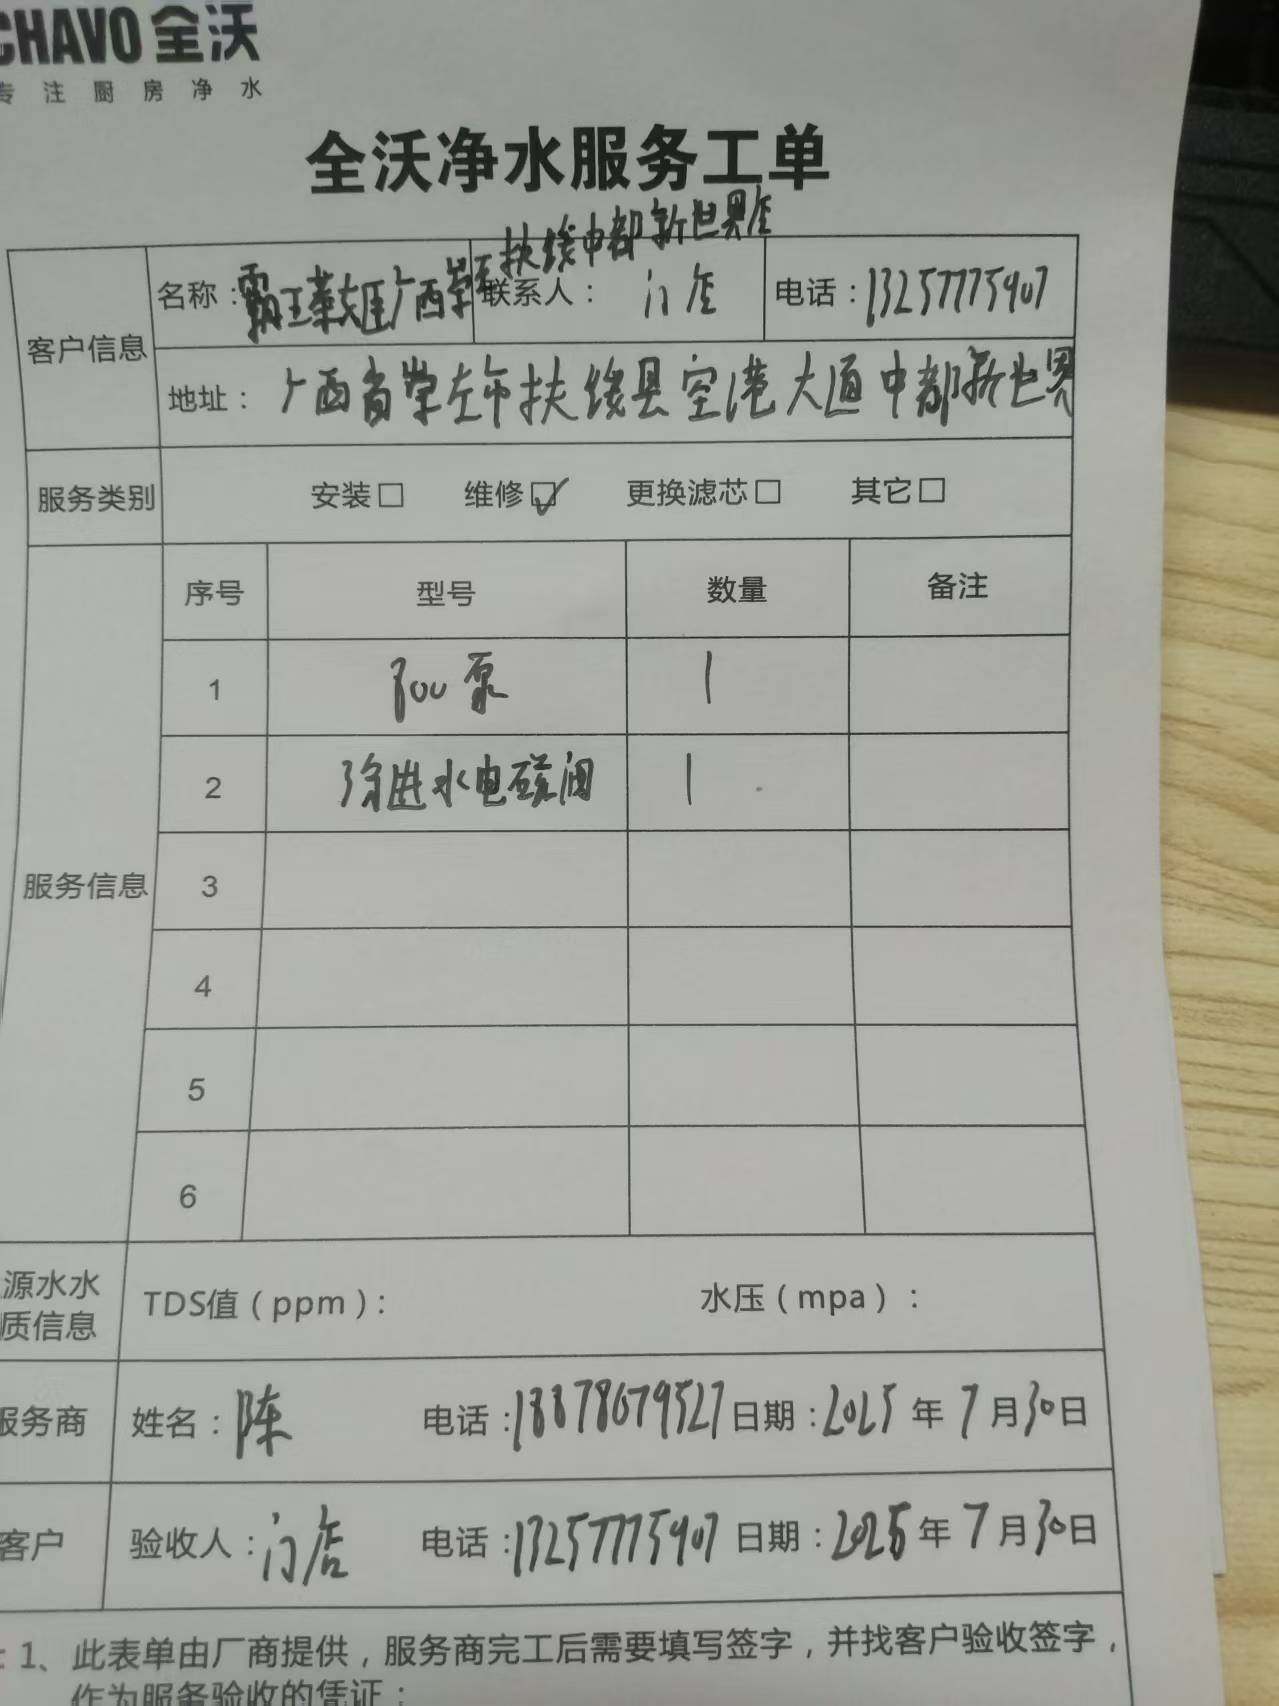 CHAVO 全沃
专注厨房净水
全沃净水服务工单
扶绥中都新世界店
客户信息 名称：霸王茶姬广西崇左 联系人：门店 电话：13257775907
地址：广西省崇左市扶绥县空港大道中都新世界
服务类别 安装□ 维修☑ 更换滤芯□ 其它□
序号 型号 数量 备注
1 800泵 1
2 涂进水电磁阀 1
服务信息 3
4
5
6
源水水质信息 TDS值（ppm）： 水压（mpa）：
服务商 姓名：陈 电话：18878679527 日期：2025年7月30日
客户 验收人：门店 电话：13257775907 日期：2025年7月30日
：1、此表单由厂商提供，服务商完工后需要填写签字，并找客户验收签字，
作为服务验收的凭证；